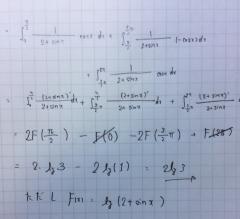 = ∫₀^{π/2} 1/(2+sinx) cosx dx + ∫_{π/2}^{3π/2} 1/(2+sinx) (-cosx) dx
+ ∫_{3π/2}^{2π} 1/(2+sinx) cosx dx
= ∫₀^{π/2} (2+sinx)'/(2+sinx) dx + ∫ (2+sinx)'/(2+sinx) + ∫ (2+sinx)'/(2+sinx)
= 2F(π/2) - F(0) - 2F(3/2 π) + F(2π)
= 2·lg 3 - 2 lg(1) = 2lg3
ただし F(x) = lg(2+sinx)